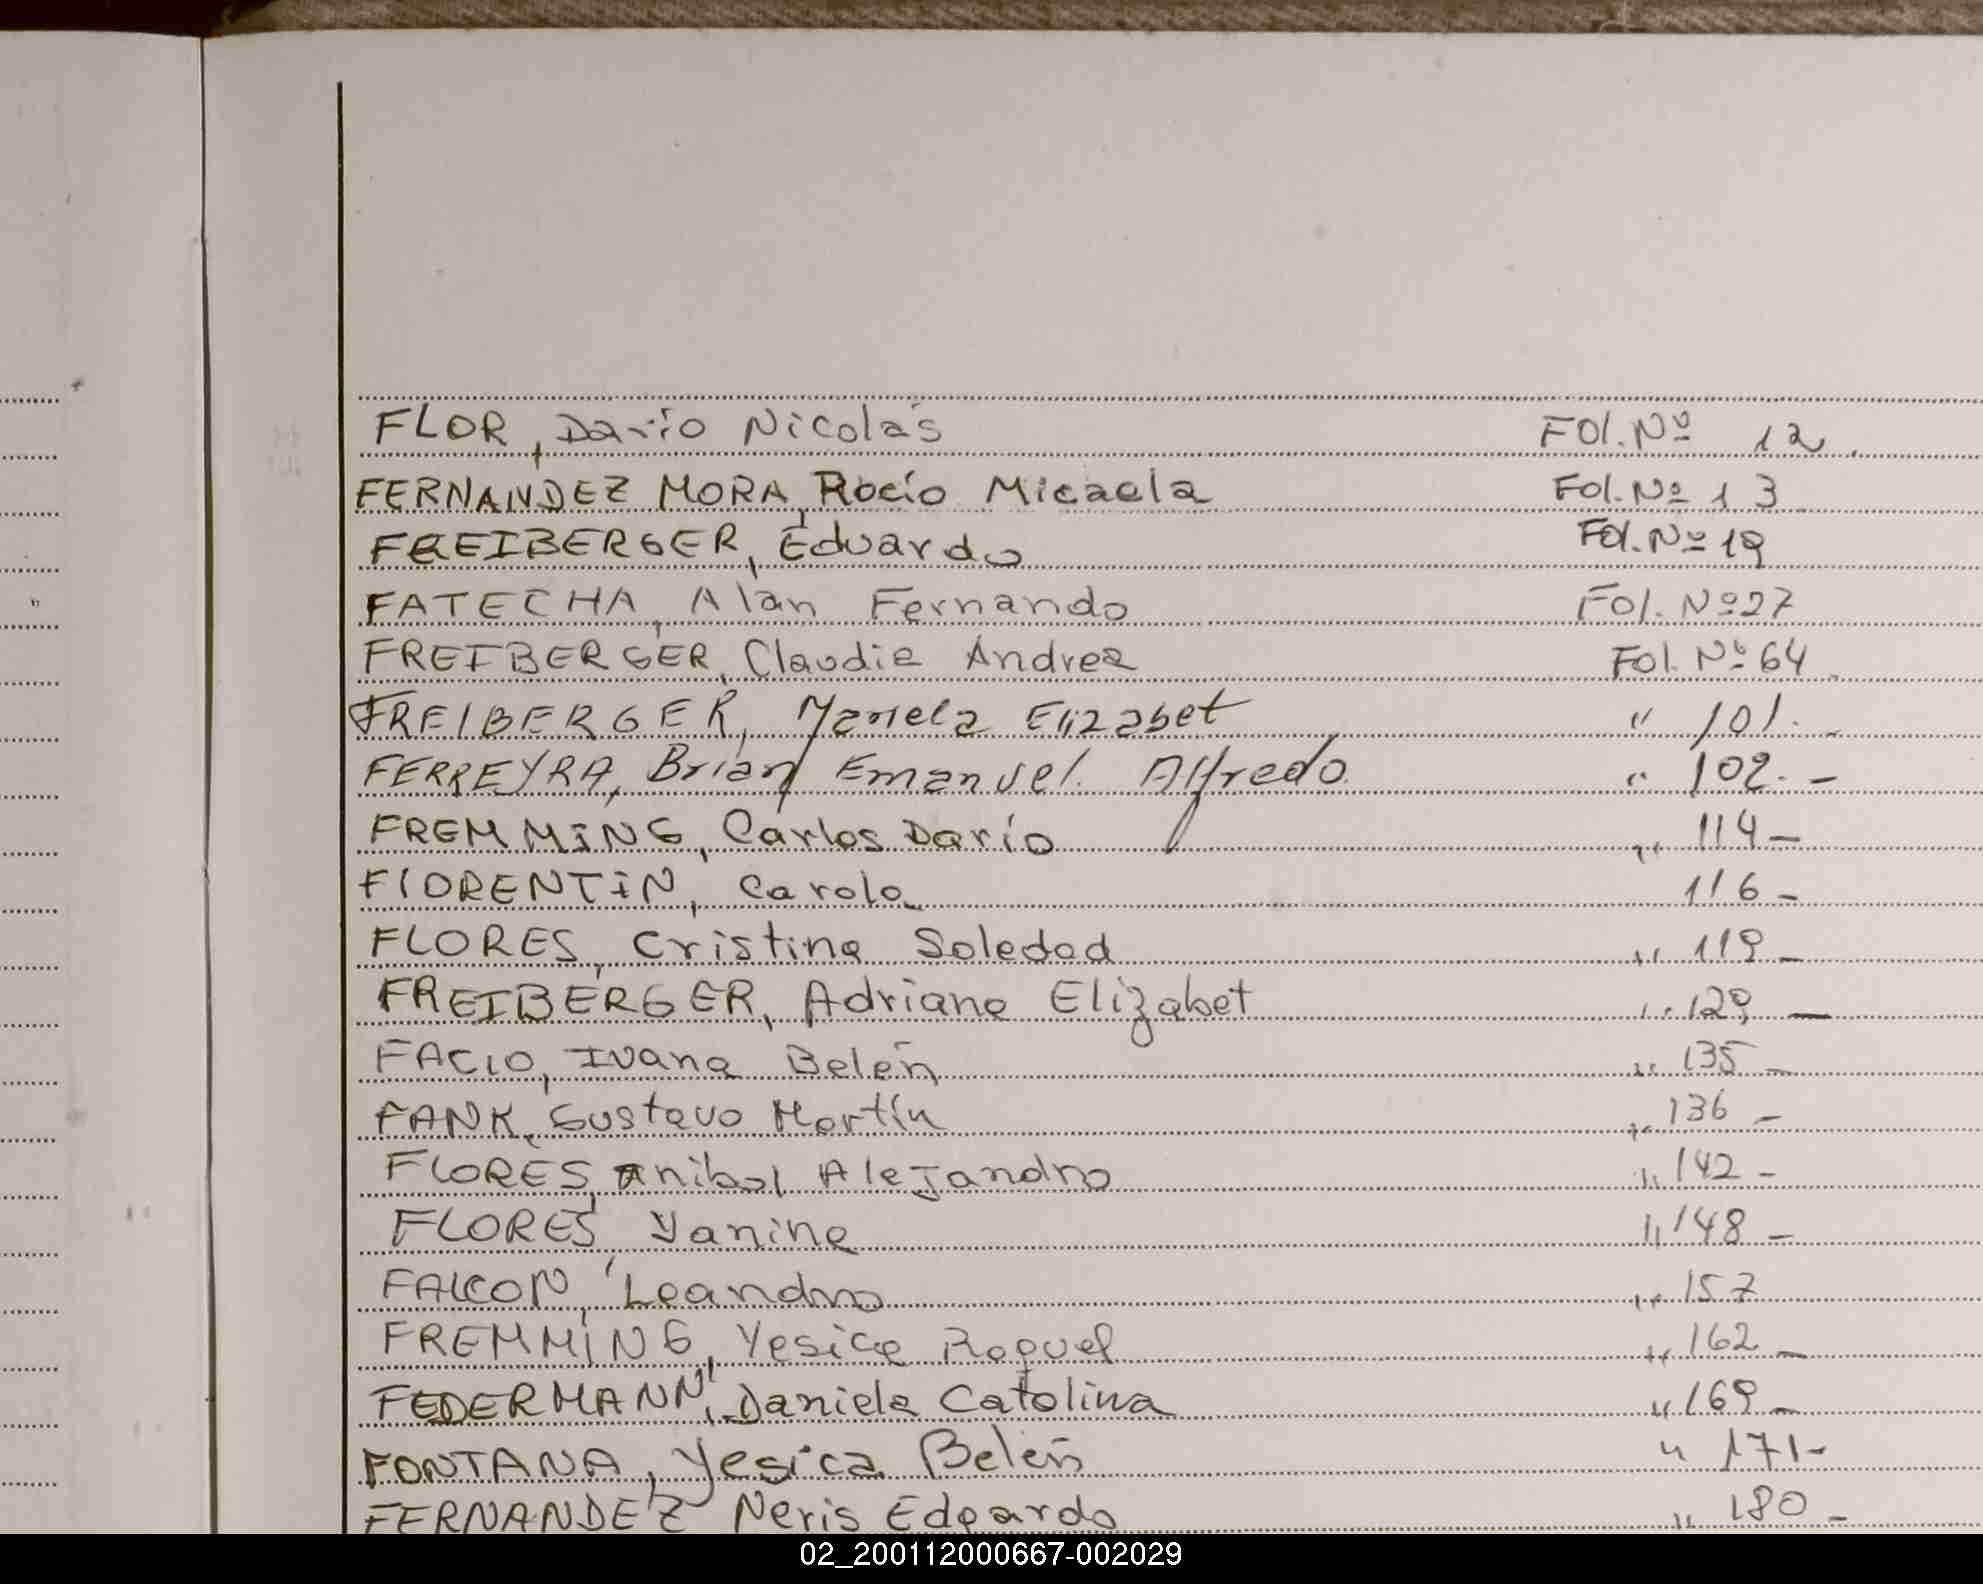 FLOR, Darío Nicolás Fol. Nº 12.
FERNANDEZ MORA, Rocío Micaela Fol. Nº 13
FREIBERGER, Eduardo Fol. Nº 19
FATECHA, Alan Fernando Fol. Nº 27
FREIBERGER, Claudia Andrea Fol. Nº 64
FREIBERGER, Mariela Elizabet " 101.-
FERREYRA, Brian Emanuel. Alfredo " 102.-
FREMMING, Carlos Darío " 114-
FIORENTIN, Carola 116-
FLORES, Cristina Soledad " 119-
FREIBERGER, Adriana Elizabet " 129-
FACIO, Ivana Belén " 135-
FANK, Gustavo Martín " 136-
FLORES, Anibal Alejandro " 142-
FLORES, Yanina " 148-
FALCON, Leandro " 157
FREMMING, Yesica Raquel " 162-
FEDERMANN, Daniela Catalina " 169-
FONTANA, Yesica Belén " 171-
FERNANDEZ Neris Edgardo " 180-
02_200112000667-002029